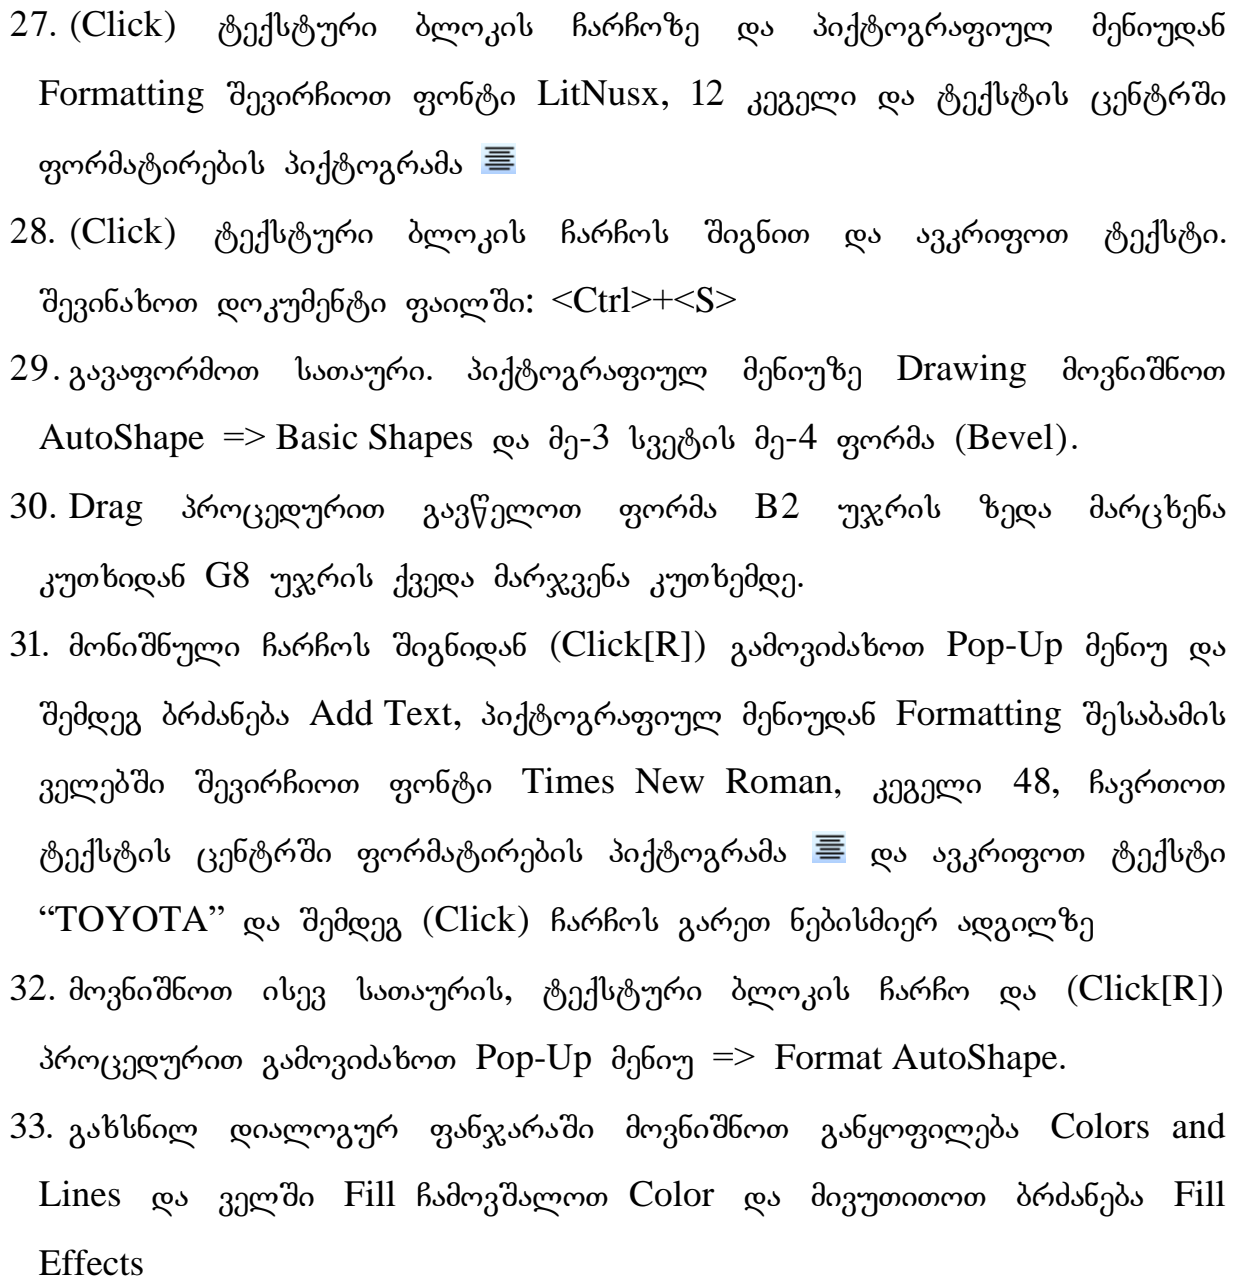 27. (Click) ტექსტური ბლოკის ჩარჩოზე და პიქტოგრაფიულ მენიუდან
Formatting შევირჩიოთ ფონტი LitNusx, 12 კეგელი და ტექსტის ცენტრში
ფორმატირების პიქტოგრამა
28. (Click) ტექსტური ბლოკის ჩარჩოს შიგნით და ავკრიფოთ ტექსტი.
შევინახოთ დოკუმენტი ფაილში: <Ctrl>+<S>
29. გავაფორმოთ სათაური. პიქტოგრაფიულ მენიუზე Drawing მოვნიშნოთ
AutoShape => Basic Shapes და მე-3 სვეტის მე-4 ფორმა (Bevel).
30. Drag პროცედურით გავწელოთ ფორმა B2 უჯრის ზედა მარცხენა
კუთხიდან G8 უჯრის ქვედა მარჯვენა კუთხემდე.
31. მონიშნული ჩარჩოს შიგნიდან (Click[R]) გამოვიძახოთ Pop-Up მენიუ და
შემდეგ ბრძანება Add Text, პიქტოგრაფიულ მენიუდან Formatting შესაბამის
ველებში შევირჩიოთ ფონტი Times New Roman, კეგელი 48, ჩავრთოთ
ტექსტის ცენტრში ფორმატირების პიქტოგრამა და ავკრიფოთ ტექსტი
“TOYOTA” და შემდეგ (Click) ჩარჩოს გარეთ ნებისმიერ ადგილზე
32. მოვნიშნოთ ისევ სათაურის, ტექსტური ბლოკის ჩარჩო და (Click[R])
პროცედურით გამოვიძახოთ Pop-Up მენიუ => Format AutoShape.
33. გახსნილ დიალოგურ ფანჯარაში მოვნიშნოთ განყოფილება Colors and
Lines და ველში Fill ჩამოვშალოთ Color და მივუთითოთ ბრძანება Fill
Effects